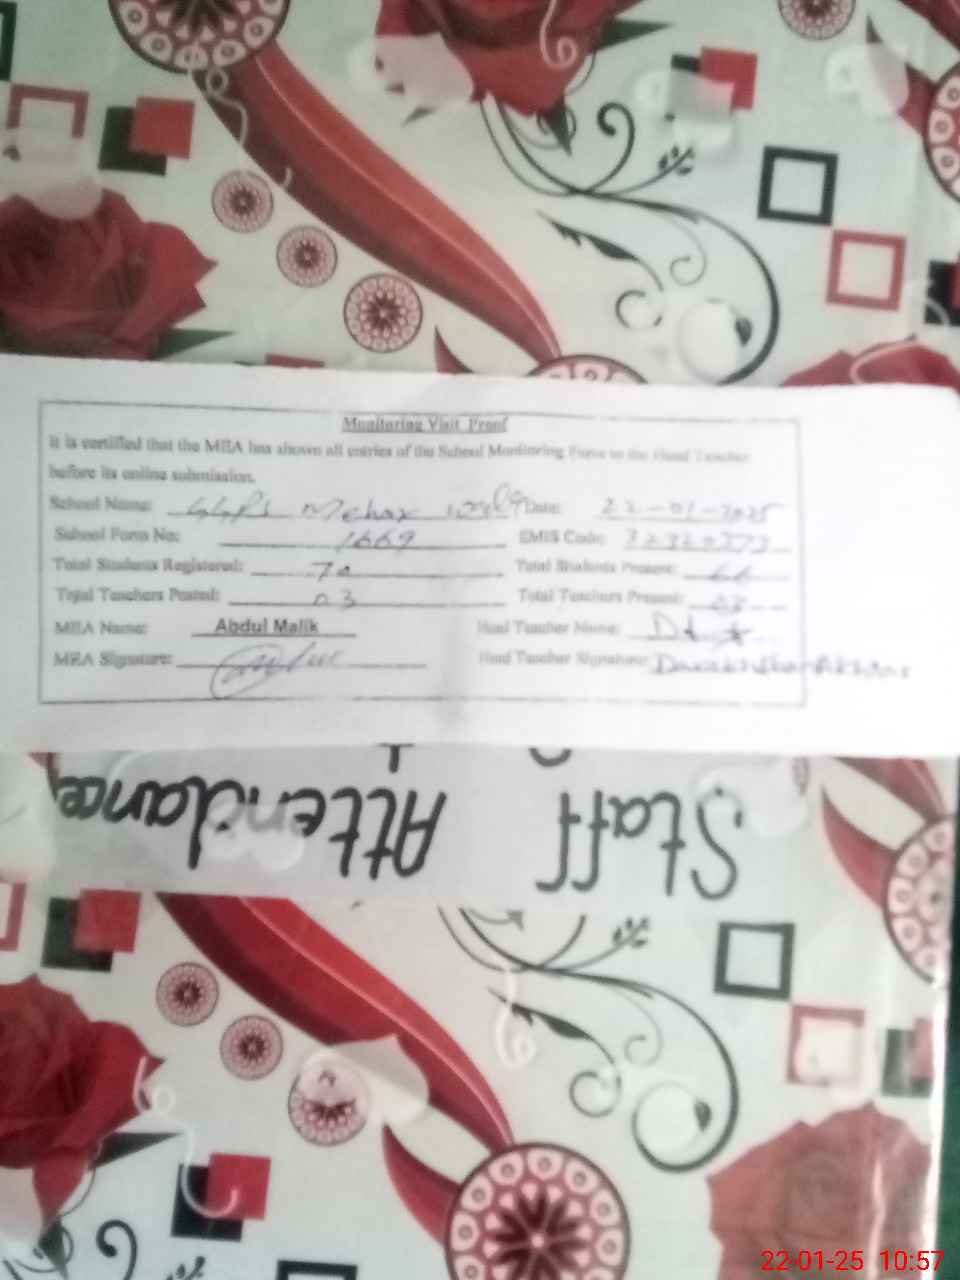 Monitoring Visit Proof
It is certified that the MEA has shown all entries of the School Monitoring Form to the Head Teacher
before its online submission.
School Name: GGPS Mehar Date: 22-01-2025
School Form No: 1669 EMIS Code: 32320373
Total Students Registered: 70 Total Students Present: 66
Total Teachers Posted: 03 Total Teachers Present: 03
MEA Name: Abdul Malik Head Teacher Name:
MEA Signature: Head Teacher Signature:
Staff Attendance
22-01-25 10:57